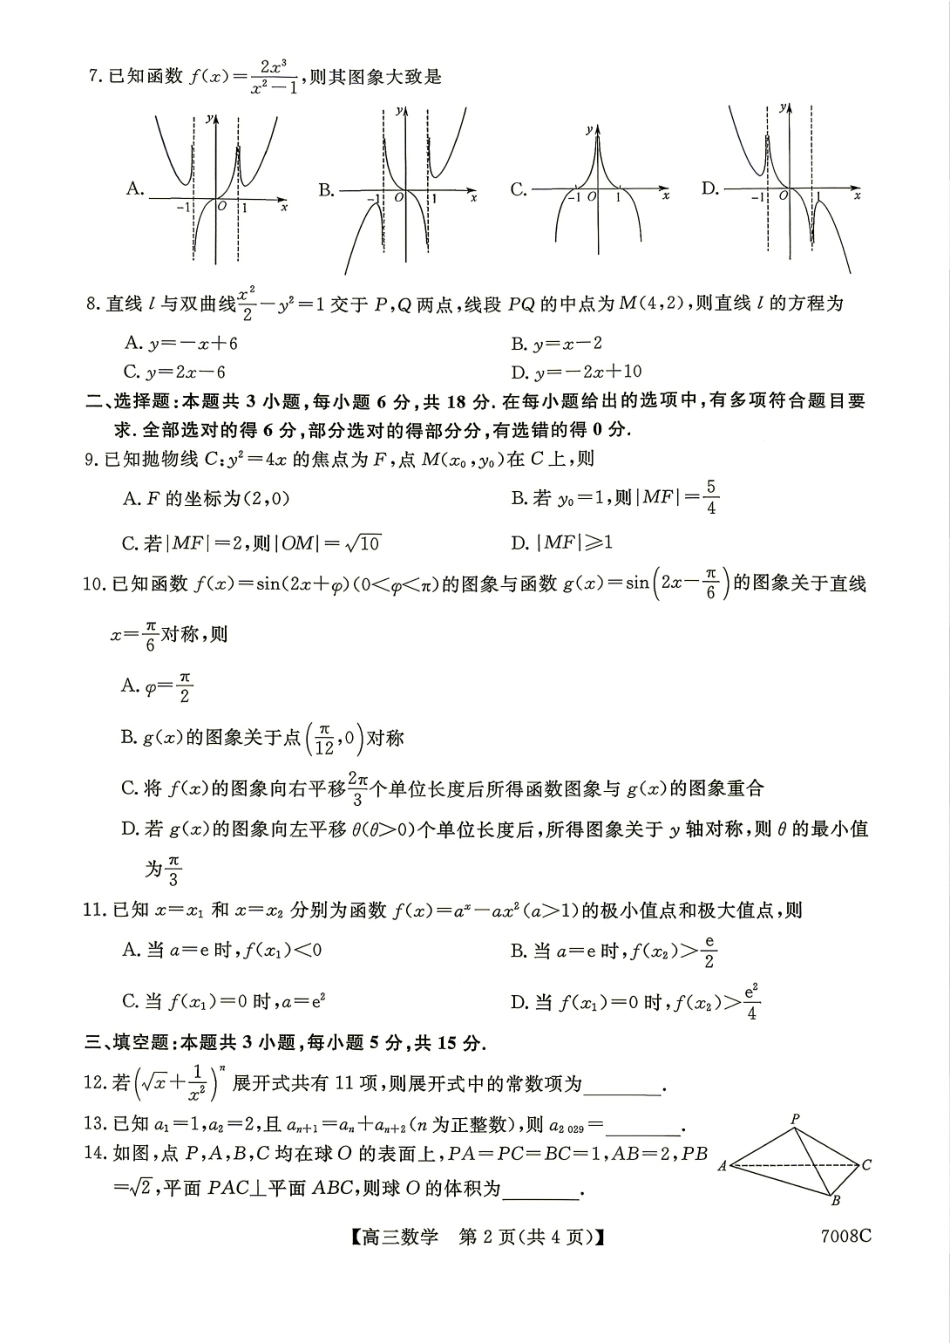 7.已知函数 f(x)=2x³/(x²-1),则其图象大致是
A. y -1 O 1 x B. y -1 O 1 x C. y -1 O 1 x D. y -1 O 1 x
8.直线 l 与双曲线x²/2-y²=1 交于 P,Q 两点,线段 PQ 的中点为 M(4,2),则直线 l 的方程为
A. y=-x+6 B. y=x-2
C. y=2x-6 D. y=-2x+10
二、选择题:本题共 3 小题,每小题 6 分,共 18 分.在每小题给出的选项中,有多项符合题目要
求.全部选对的得 6 分,部分选对的得部分分,有选错的得 0 分.
9.已知抛物线 C:y²=4x 的焦点为 F,点 M(x₀,y₀)在 C 上,则
A. F 的坐标为(2,0) B. 若 y₀=1,则|MF|=5/4
C. 若|MF|=2,则|OM|=√10 D. |MF|≥1
10.已知函数 f(x)=sin(2x+φ)(0<φ<π)的图象与函数 g(x)=sin(2x-π/6)的图象关于直线
x=π/6对称,则
A. φ=π/2
B. g(x)的图象关于点(π/12,0)对称
C. 将 f(x)的图象向右平移2π/3个单位长度后所得函数图象与 g(x)的图象重合
D. 若 g(x)的图象向左平移 θ(θ>0)个单位长度后,所得图象关于 y 轴对称,则 θ 的最小值
为π/3
11.已知 x=x₁ 和 x=x₂ 分别为函数 f(x)=aˣ-ax²(a>1)的极小值点和极大值点,则
A. 当 a=e 时,f(x₁)<0 B. 当 a=e 时,f(x₂)>e/2
C. 当 f(x₁)=0 时,a=e² D. 当 f(x₁)=0 时,f(x₂)>e²/4
三、填空题:本题共 3 小题,每小题 5 分,共 15 分.
12.若(√x+1/x²)ⁿ 展开式共有 11 项,则展开式中的常数项为________.
13.已知 a₁=1,a₂=2,且 aₙ₊₁=aₙ+aₙ₊₂(n 为正整数),则 a₂₀₂₉=________.
14.如图,点 P,A,B,C 均在球 O 的表面上,PA=PC=BC=1,AB=2,PB
=√2,平面 PAC⊥平面 ABC,则球 O 的体积为________.
P
A C
B
【高三数学 第 2 页(共 4 页)】 7008C